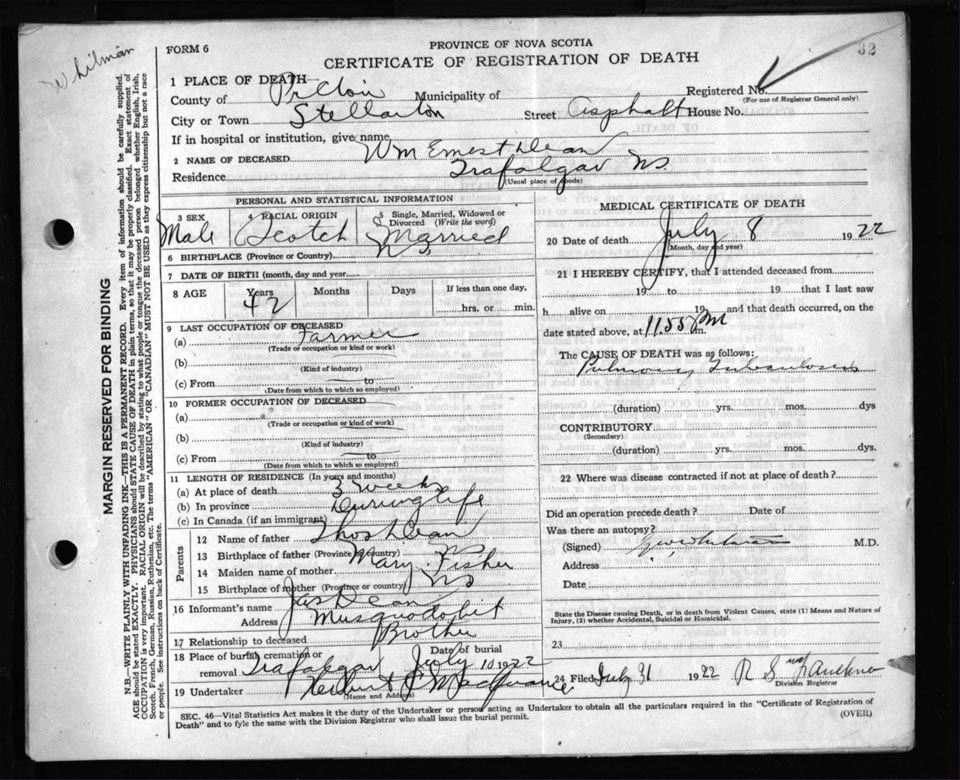 Whilman
FORM 6
PROVINCE OF NOVA SCOTIA
32
CERTIFICATE OF REGISTRATION OF DEATH
1 PLACE OF DEATH
Registered No.
County of Pictou Municipality of
(For use of Registrar General only)
City or Town Stellarton Street Asphalt House No.
If in hospital or institution, give name
2 NAME OF DECEASED Wm Ernest Dean
Residence Trafalgar N.S.
(Usual place of abode)
PERSONAL AND STATISTICAL INFORMATION
3 SEX Male
4 RACIAL ORIGIN Scotch
5 Single, Married, Widowed or Divorced (Write the word) Married
6 BIRTHPLACE (Province or Country) N S
7 DATE OF BIRTH (month, day and year)
8 AGE Years 42 Months Days If less than one day, hrs. or min.
9 LAST OCCUPATION OF DECEASED
(a) Farmer
(Trade or occupation or kind or work)
(b)
(Kind of industry)
(c) From to
(Date from which to which so employed)
10 FORMER OCCUPATION OF DECEASED
(a)
(Trade or occupation or kind of work)
(b)
(Kind of industry)
(c) From to
(Date from which to which so employed)
11 LENGTH OF RESIDENCE (In years and months)
(a) At place of death 3 weeks
(b) In province During life
(c) In Canada (if an immigrant)
Parents
12 Name of father Thos Dean
13 Birthplace of father (Province or country) NS
14 Maiden name of mother Mary Fisher
15 Birthplace of mother (Province or country) NS
16 Informant's name Jas Dean
Address Musquodobit
17 Relationship to deceased Brother
18 Place of burial, cremation or removal Trafalgar Date of burial July 10 1922
19 Undertaker
(Name and Address)
MEDICAL CERTIFICATE OF DEATH
20 Date of death July 8 1922
(Month, day and year)
21 I HEREBY CERTIFY, that I attended deceased from
19 to 19 that I last saw
h alive on 19 and that death occurred, on the
date stated above, at 11.55 PM m.
The CAUSE OF DEATH was as follows:
Pulmonary Tuberculosis
(duration) yrs. mos. dys
CONTRIBUTORY
(Secondary)
(duration) yrs. mos. dys.
22 Where was disease contracted if not at place of death?
Did an operation precede death? Date of
Was there an autopsy?
(Signed) M.D.
Address
Date
State the Disease causing Death, or in death from Violent Causes, state (1) Means and Nature of Injury, (2) whether Accidental, Suicidal or Homicidal.
23
24 Filed July 31 1922 R S
Division Registrar
SEC. 46—Vital Statistics Act makes it the duty of the Undertaker or person acting as Undertaker to obtain all the particulars required in the "Certificate of Registration of
Death" and to fyle the same with the Division Registrar who shall issue the burial permit.
(OVER)
MARGIN RESERVED FOR BINDING
N.B.—WRITE PLAINLY WITH UNFADING INK—THIS IS A PERMANENT RECORD. Every item of information should be carefully supplied.
AGE should be stated EXACTLY. PHYSICIANS should STATE CAUSE OF DEATH in plain terms, so that it may be properly classified. Exact statement of
OCCUPATION is very important. RACIAL ORIGIN will be described by stating to what people or tongue the deceased person belonged whether English, Irish,
Scotch, French, German, Russian, Ruthenian, etc. The terms "AMERICAN" OR "CANADIAN" MUST NOT BE USED as they express citizenship but not a race
or people. See instructions on back of Certificate.